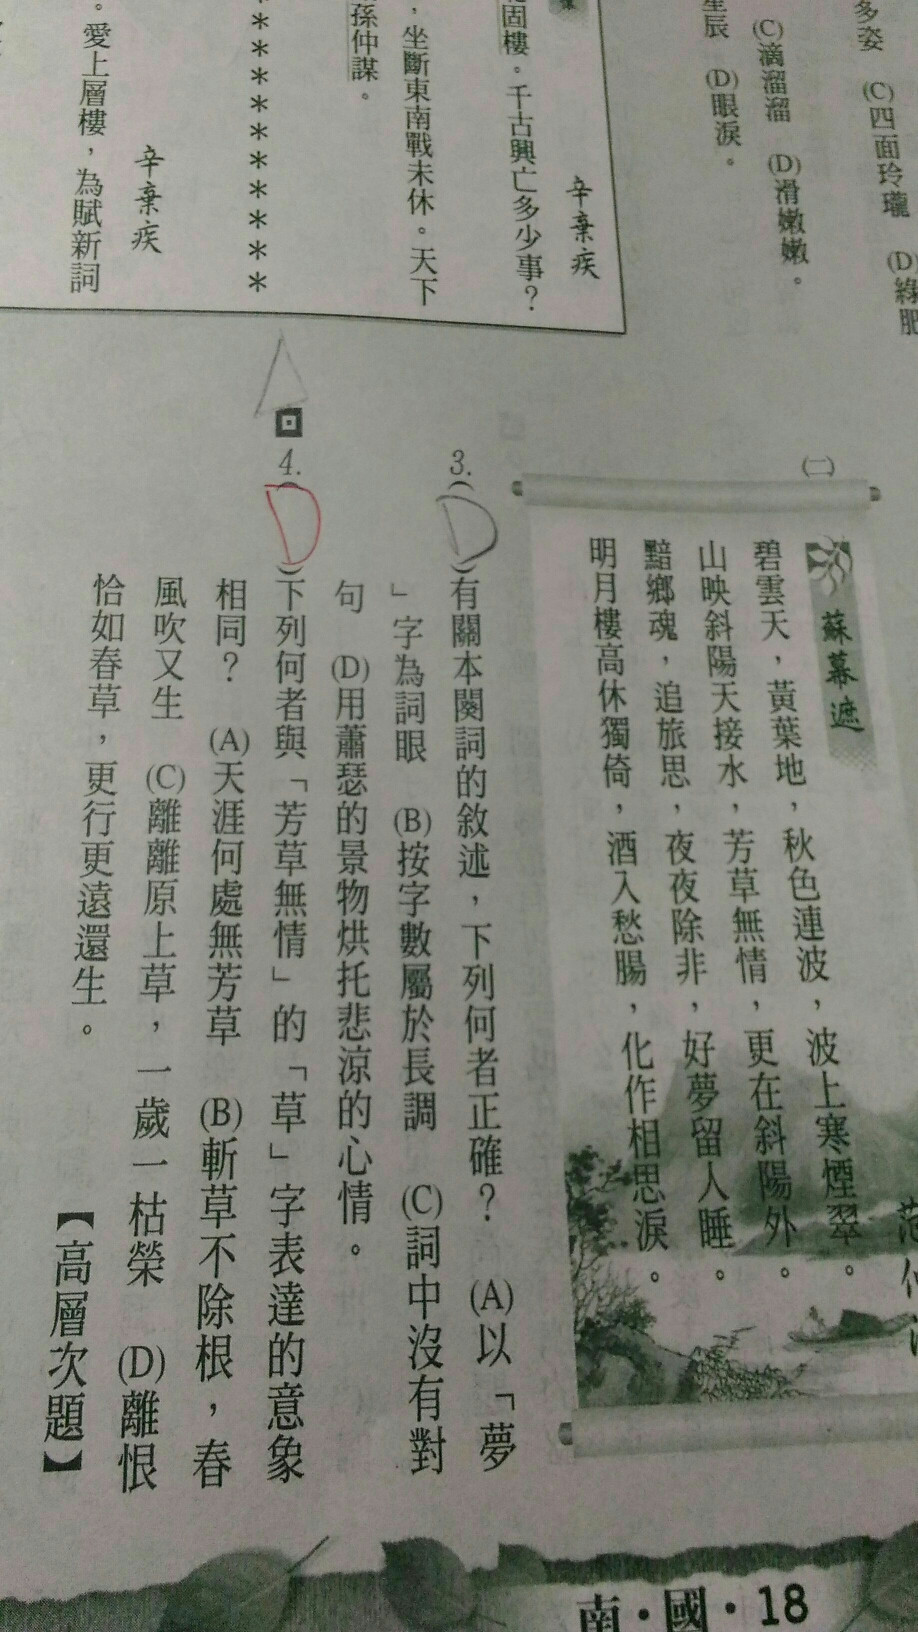 多姿 (C)四面玲瓏 (D)綠肥
(C)滴溜溜 (D)滑嫩嫩。
星辰 (D)眼淚。
辛棄疾
固樓。千古興亡多少事?
,坐斷東南戰未休。天下
孫仲謀。
***********
辛棄疾
。愛上層樓,為賦新詞
(二)
蘇幕遮
范仲淹
碧雲天,黃葉地,秋色連波,波上寒煙翠。
山映斜陽天接水,芳草無情,更在斜陽外。
黯鄉魂,追旅思,夜夜除非,好夢留人睡。
明月樓高休獨倚,酒入愁腸,化作相思淚。
3.(D)有關本闋詞的敘述,下列何者正確? (A)以「夢
」字為詞眼 (B)按字數屬於長調 (C)詞中沒有對
句 (D)用蕭瑟的景物烘托悲涼的心情。
4.(D)下列何者與「芳草無情」的「草」字表達的意象
相同? (A)天涯何處無芳草 (B)斬草不除根,春
風吹又生 (C)離離原上草,一歲一枯榮 (D)離恨
恰如春草,更行更遠還生。
【高層次題】
南・國・18